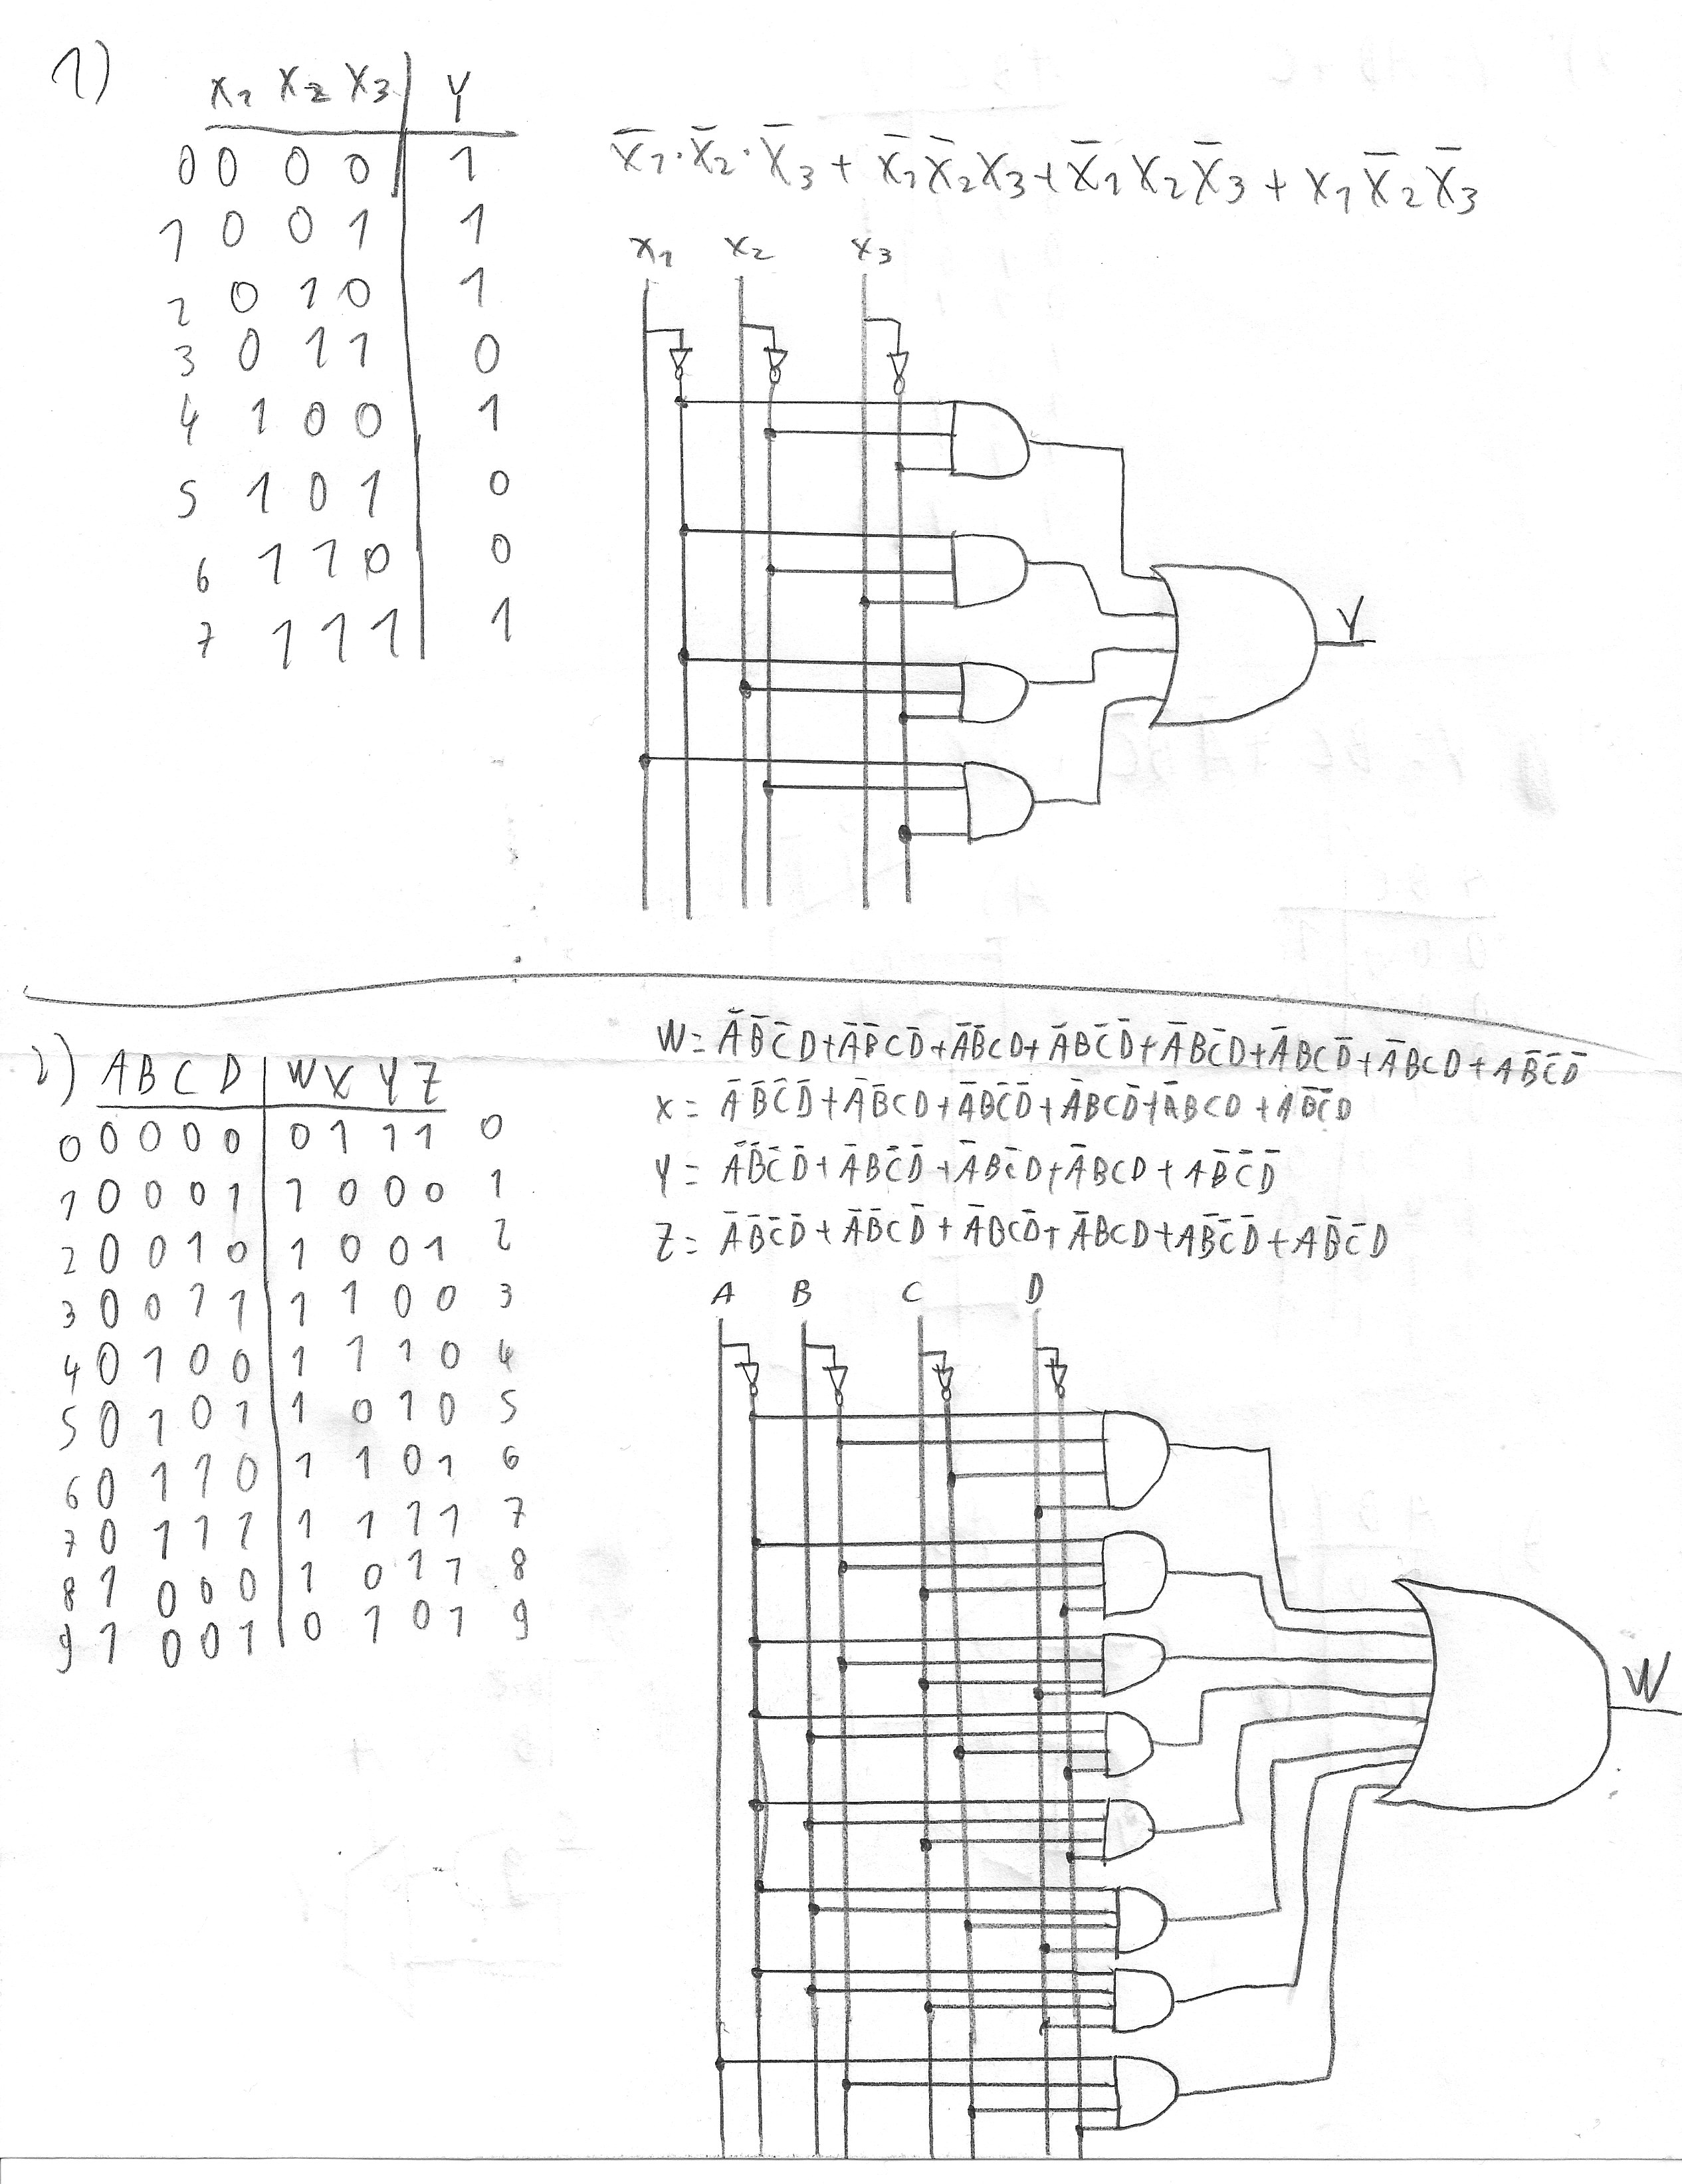 1)
X₁ X₂ X₃ | Y
0 0 0 0 | 1
1 0 0 1 | 1
2 0 1 0 | 1
3 0 1 1 | 0
4 1 0 0 | 1
5 1 0 1 | 0
6 1 1 0 | 0
7 1 1 1 | 1
X̄₁·X̄₂·X̄₃ + X̄₁X̄₂X₃ + X̄₁X₂X̄₃ + X₁X̄₂X̄₃
X₁ X₂ X₃
Y
2) A B C D | W X Y Z
0 0 0 0 0 | 0 1 1 1 0
1 0 0 0 1 | 1 0 0 0 1
2 0 0 1 0 | 1 0 0 1 2
3 0 0 1 1 | 1 1 0 0 3
4 0 1 0 0 | 1 1 1 0 4
5 0 1 0 1 | 1 0 1 0 5
6 0 1 1 0 | 1 1 0 1 6
7 0 1 1 1 | 1 1 1 1 7
8 1 0 0 0 | 1 0 1 1 8
9 1 0 0 1 | 0 1 0 1 9
W = ĀB̄C̄D + ĀB̄CD̄ + ĀB̄CD + ĀBC̄D̄ + ĀBC̄D + ĀBCD̄ + ĀBCD + AB̄C̄D̄
X = ĀB̄C̄D̄ + ĀB̄CD + ĀBC̄D̄ + ĀBCD̄ + ĀBCD + AB̄C̄D
Y = ĀB̄C̄D̄ + ĀBC̄D̄ + ĀBC̄D + ĀBCD + AB̄C̄D̄
Z = ĀB̄C̄D̄ + ĀB̄CD̄ + ĀBCD̄ + ĀBCD + AB̄C̄D̄ + AB̄C̄D
A B C D
W